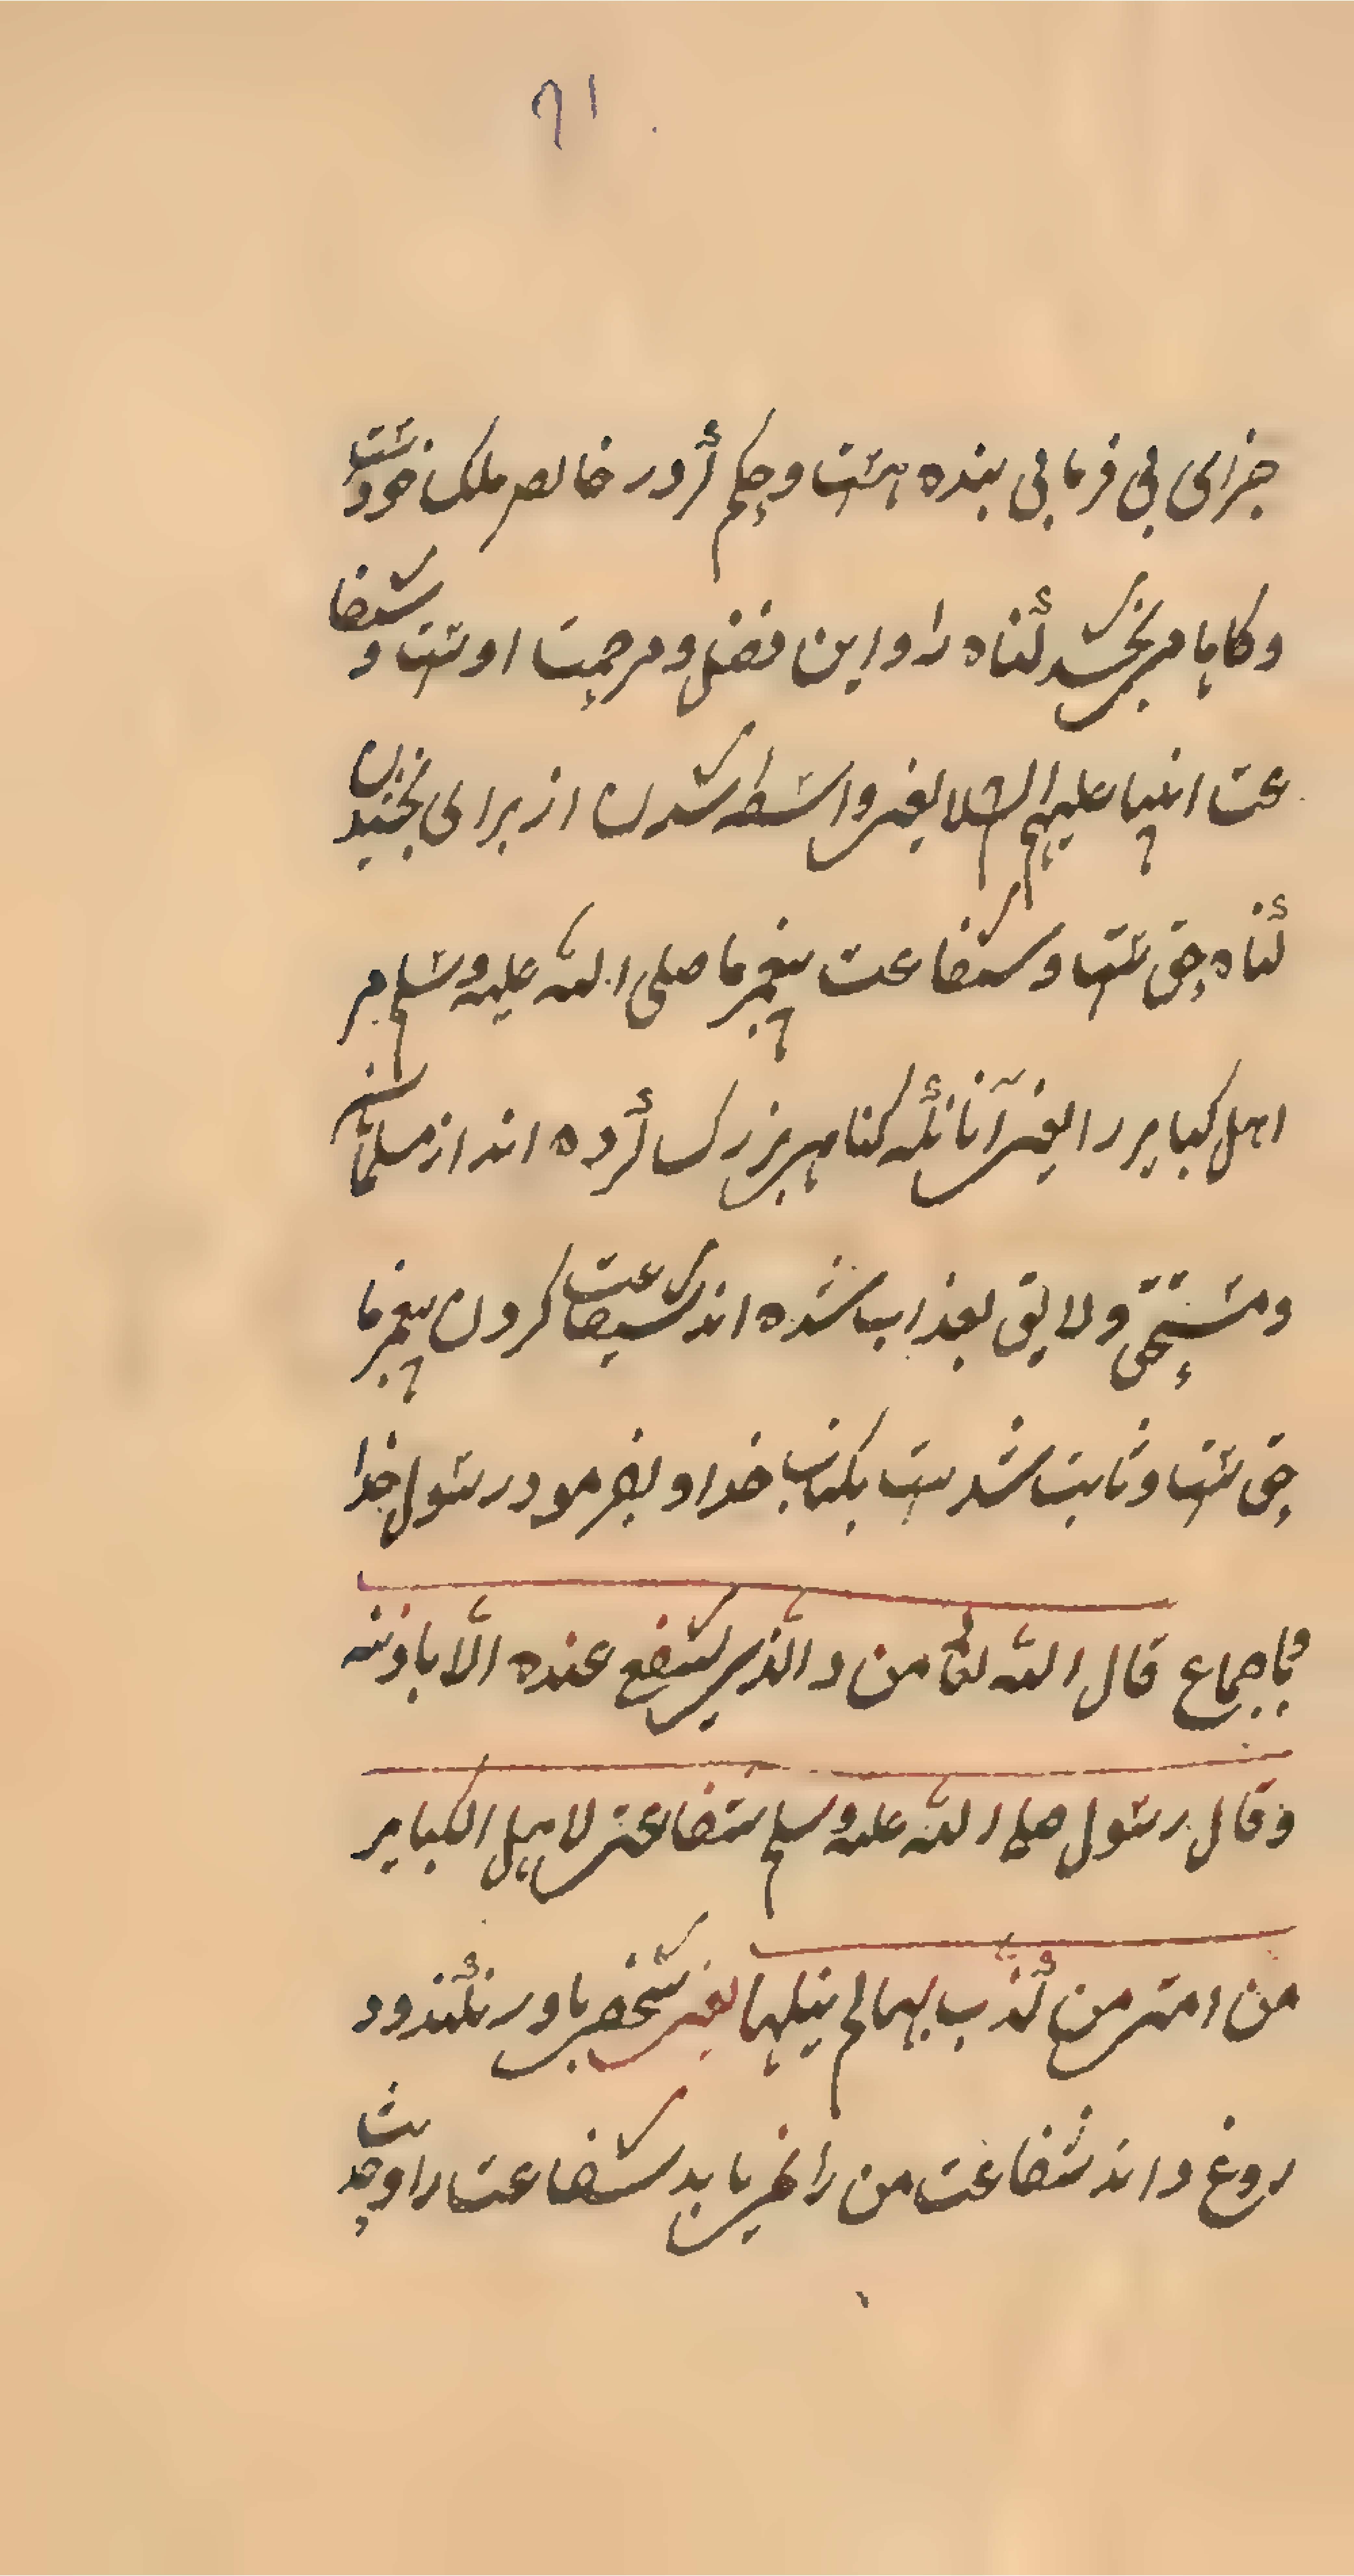 ۹۱
جزای بی فرمانی بنده هست و حکم أرد در خالص ملک خودست
و کاها می بخشد گناه را و این فضل و مرحمت اوست و شفا
عت انبیا علیهم السلا یعنی واسطه شدن از برای بخشیدن
گناه حق ست و شفاعت پیغمبر ما صلی الله علیه وسلم مر
اهل کبایر را یعنی آنانکه کناهی بزرک کرده اند از مسلمانی
و مستحق و لایق بعذاب شده اند شفاعت کردن پیغمبر ما
حق ست و ثابت شدست بکتاب خدا و بفرمود رسول خدا
و باجماع قال الله تعا من ذالذی یشفع عنده الّا باذنه
و قال رسول صلی الله علیه وسلم شفاعتی لاهل الکبایر
من امتی من کذب بها لم ینلها یعنی شخصی باور نکند و د
روغ داند شفاعت من را نمی یابد شفاعت را و حدیث